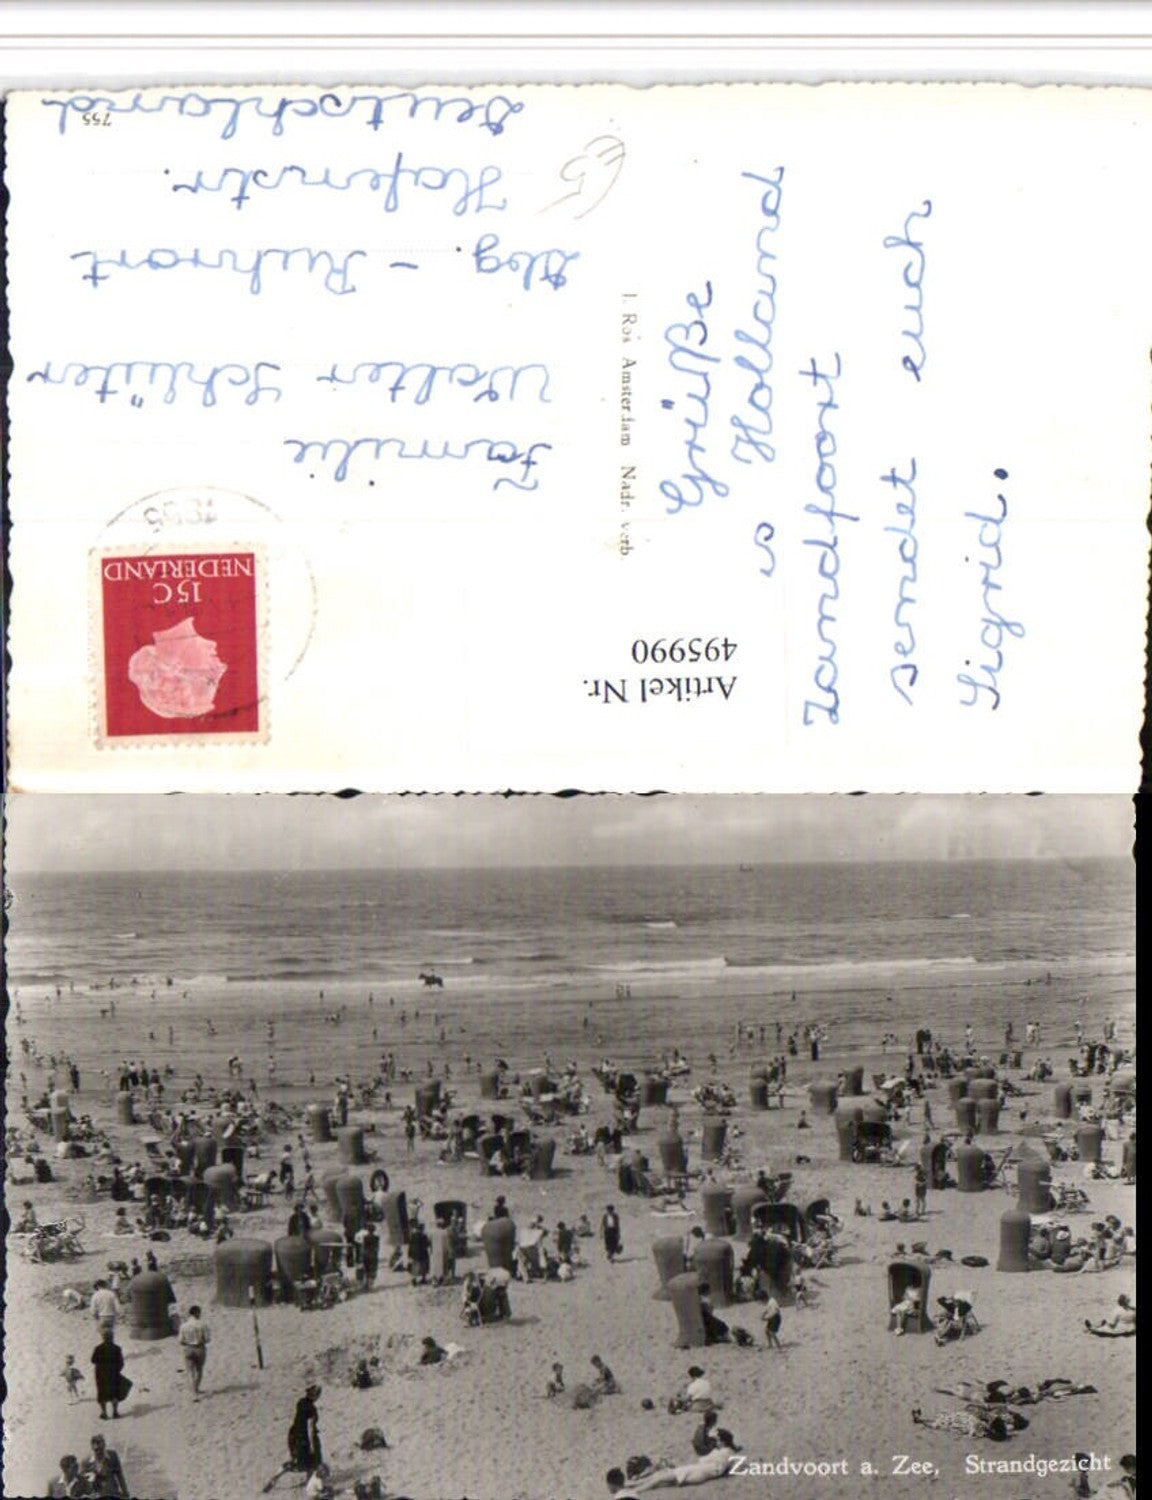 Grüße
is Holland
Zandfoort
sendet euch
Sigrid.
J. Roš Amsterdam Nadr. verb.
Familie
Walter Schlüter
Dbg. - Ruhrort
Hafenstr.
Deutschland
755
€5
NEDERLAND
15 C
Artikel Nr.
495990
Zandvoort a. Zee, Strandgezicht